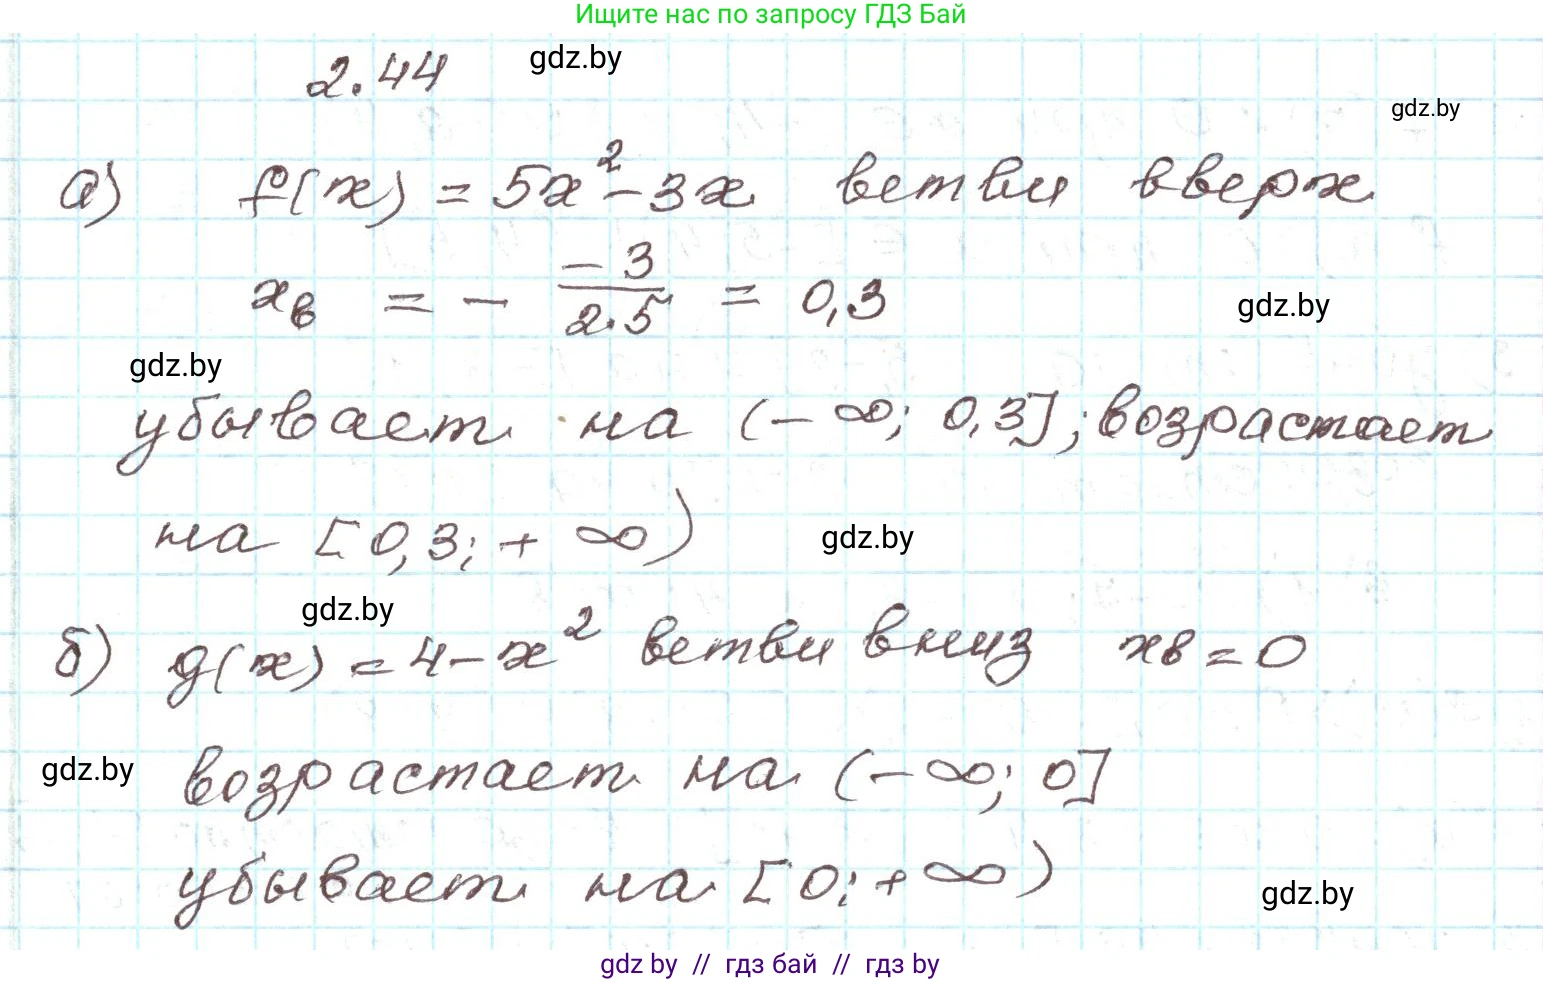 Ищите нас по запросу ГДЗ Бай
2.44 gdz.by
gdz.by
а) f(x) = 5x² - 3x ветви вверх
xв = - \frac{-3}{2·5} = 0,3 gdz.by
gdz.by
убывает на (-∞; 0,3]; возрастает
на [0,3; +∞) gdz.by
gdz.by
б) g(x) = 4 - x² ветви вниз xв = 0
gdz.by возрастает на (-∞; 0]
убывает на [0; +∞) gdz.by
gdz by // гдз бай // гдз by